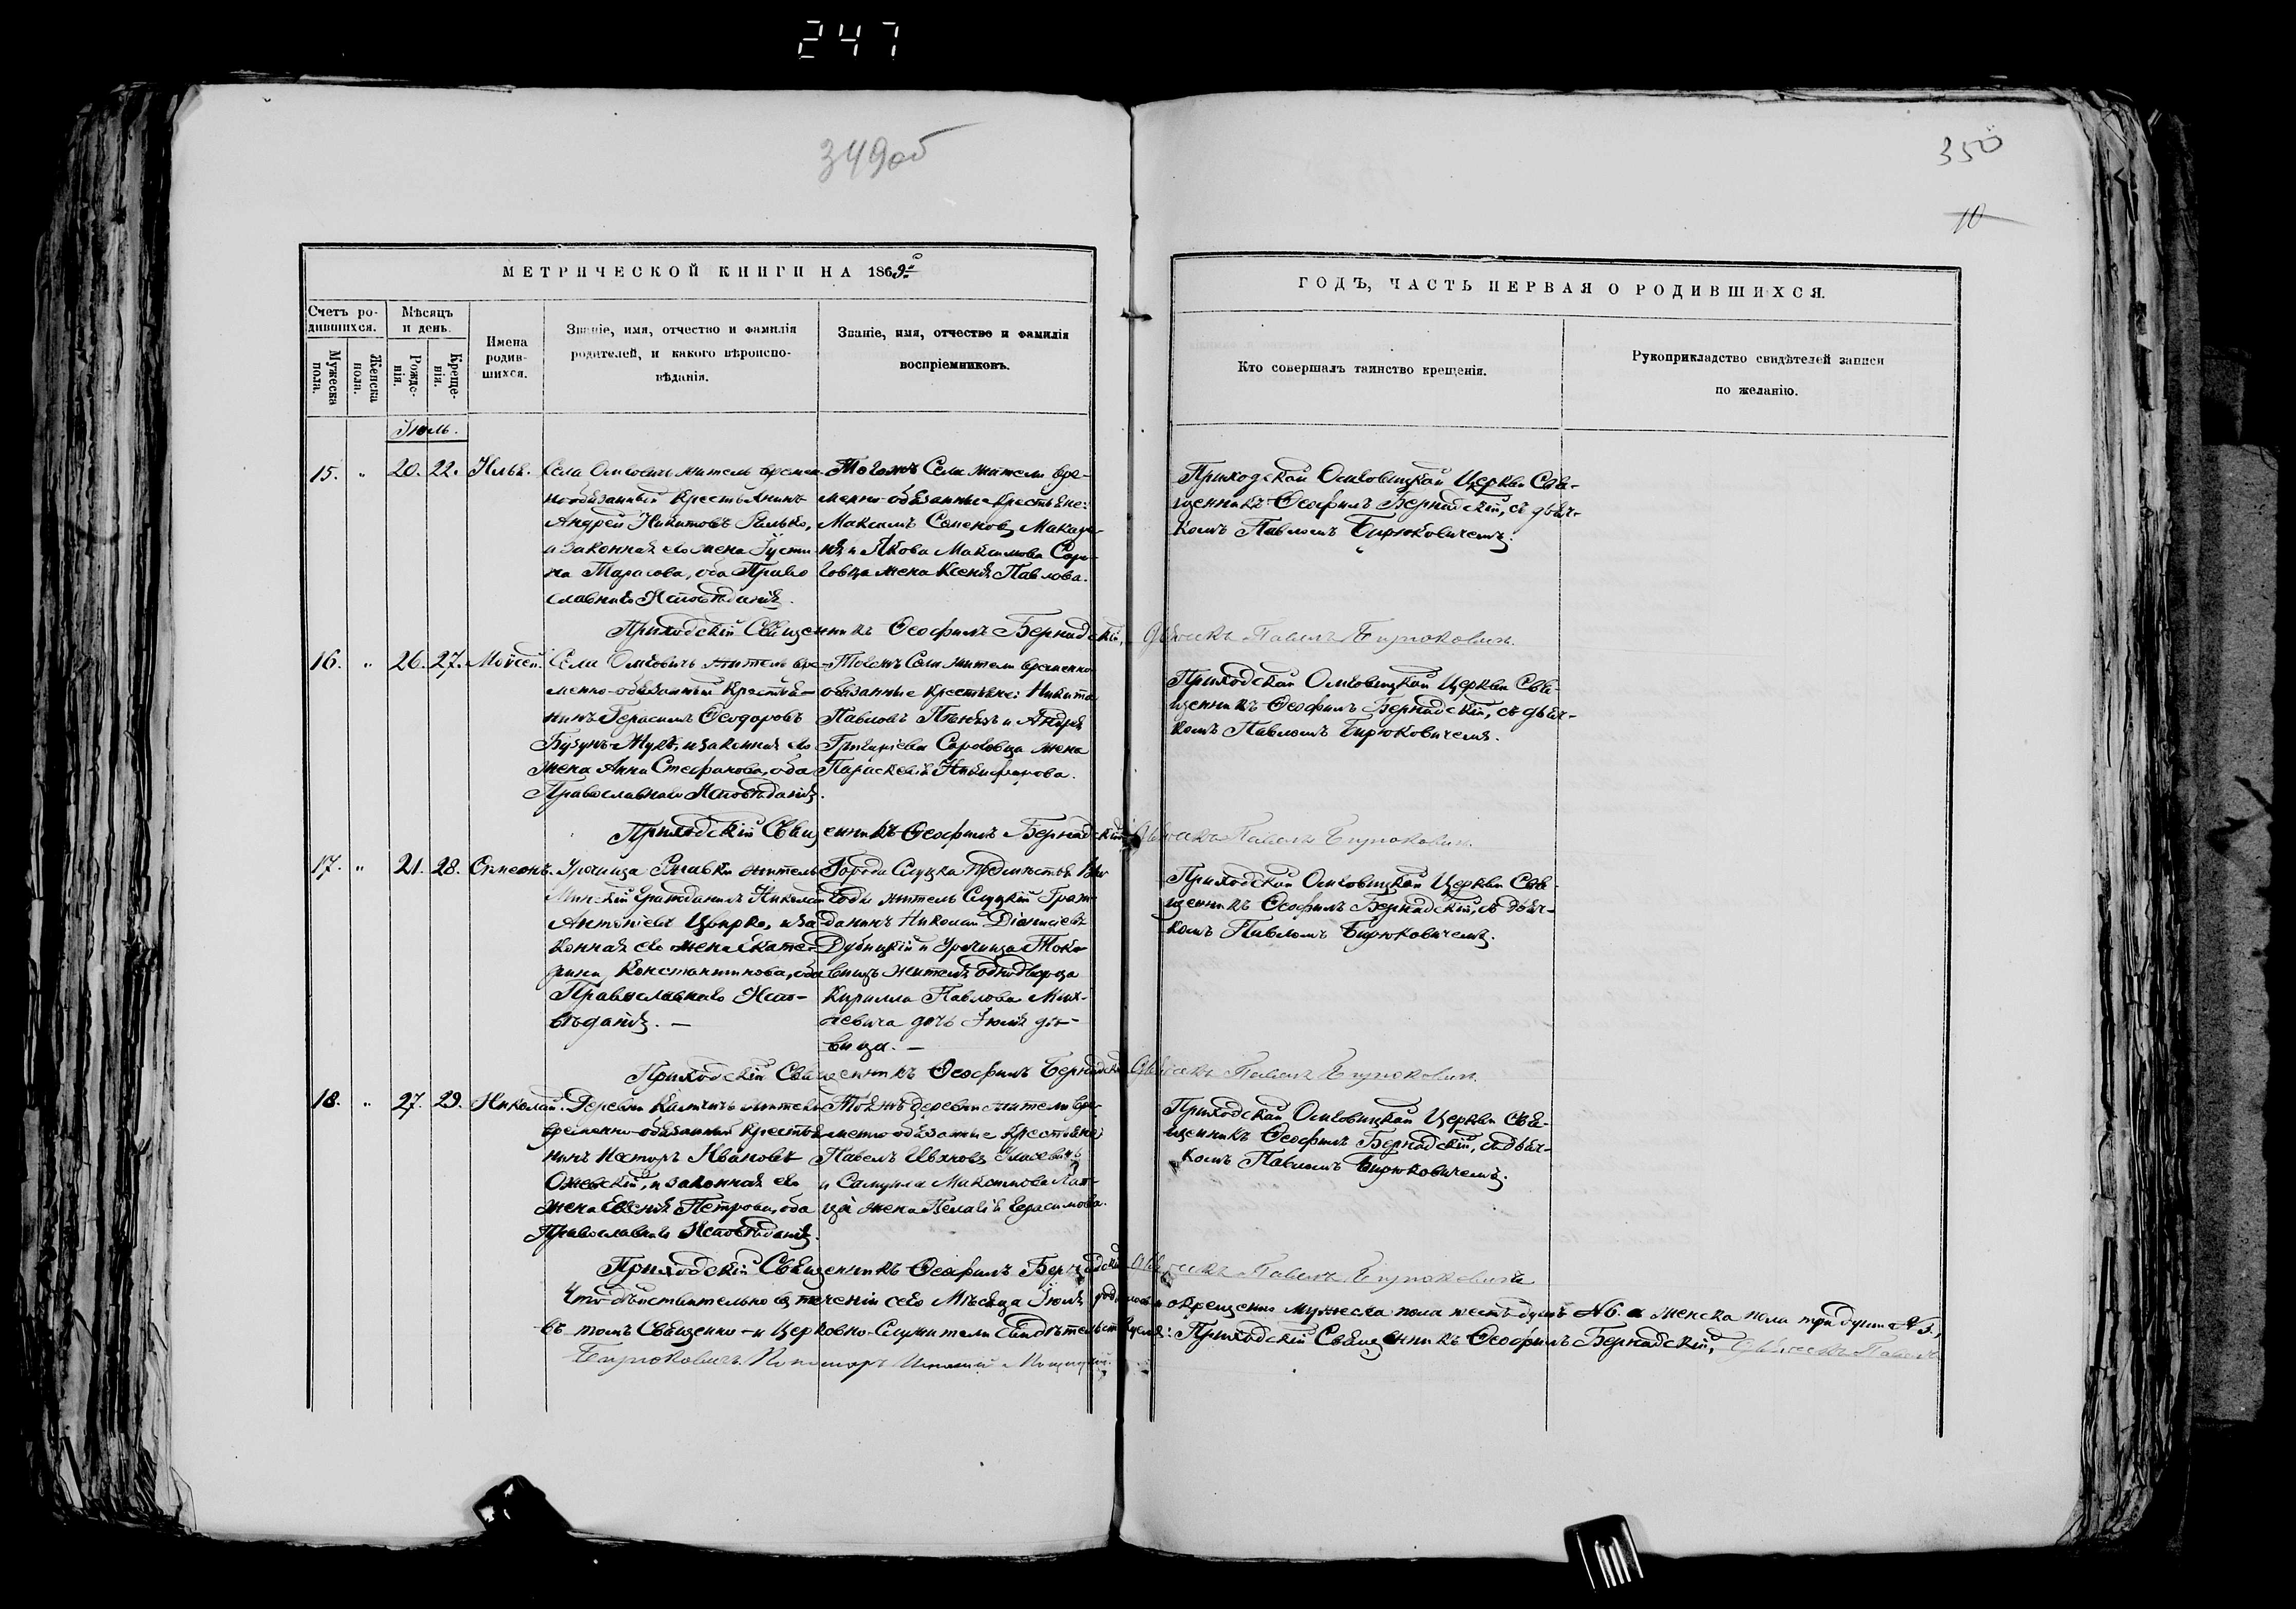 247
349об
350
10
МЕТРИЧЕСКОЙ КНИГИ НА 1869й
ГОДЪ, ЧАСТЬ ПЕРВАЯ О РОДИВШИХСЯ.
Счетъ ро-
дившихся.
Мужеска пола.
Женска пола.
Мѣсяцъ
и день.
Рожде-
нія.
Креще-
нія.
Имена
родив-
шихся.
Званіе, имя, отчество и фамилія
родителей, и какого вѣроиспо-
вѣданія.
Званіе, имя, отчество и фамилія
воспріемниковъ.
Кто совершалъ таинство крещенія.
Рукоприкладство свидѣтелей записи
по желанію.
Іюль.
15. „ 20. 22. Илья.
Села житель времен-
нообязанный Крестьянинъ
Андрей Никитовъ
и законная его жена Іусти-
на Тарасова, оба Право
славнаго Исповѣданія.
Тогожъ Села жители вре-
менно-обязанные крестьяне:
Максимъ Семеновъ
и Якова Максимова
жена Ксенія Павлова.
Приходской Церкви Свя-
щенникъ Ѳеофилъ Бернадскій, съ дьяч-
комъ Павломъ Бирюковичемъ.
Приходскій Священникъ Ѳеофилъ Бернадскій, Дьячекъ Павелъ Бирюковичъ.
16. „ 26. 27. Моѵсей.
Села житель вре-
менно-обязанный Крестья-
нинъ Герасимъ Ѳеодоровъ
и законная его
жена Анна Стефанова, оба
Православнаго Исповѣданія.
Тогожъ Села жители временно
обязанные крестьяне: Никита
Павловъ и Андрея
Григоріева жена
Параскевія Никифорова.
Приходской Церкви Свя-
щенникъ Ѳеофилъ Бернадскій, съ дьяч-
комъ Павломъ Бирюковичемъ.
Приходскій Священникъ Ѳеофилъ Бернадскій Дьячекъ Павелъ Бирюковичъ.
17. „ 21. 28. Симеонъ.
Урочища житель
Минскій Гражданинъ Николай
Антоніевъ Цвирко, и за-
конная его жена Екате-
рина Константинова, оба
Православнаго Испо-
вѣданія. —
Города Слуцка
житель Слуцкій Граж-
данинъ Николай Діонисіевъ
Дубицкій и Урочища
жителя однодворца
Кирилла Павлова
дочь Іюлія дѣ-
вица. —
Приходской Церкви Свя-
щенникъ Ѳеофилъ Бернадскій, съ дьяч-
комъ Павломъ Бирюковичемъ.
Приходскій Священникъ Ѳеофилъ Бернадскій Дьячекъ Павелъ Бирюковичъ.
18. „ 27. 29. Николай.
Деревни житель
временно-обязанный Крестья-
нинъ Несторъ Ивановъ
и законная его
жена Евгенія Петрова, оба
Православнаго Исповѣданія.
Тойжъ деревни жители вре-
менно обязанные Крестьяне:
Павелъ
и Самуила Максимова
жена Пелагія Герасимова.
Приходской Церкви Свя-
щенникъ Ѳеофилъ Бернадскій, съ дьяч-
комъ Павломъ Бирюковичемъ.
Приходскій Священникъ Ѳеофилъ Бернадскій Дьячекъ Павелъ Бирюковичъ
Что дѣйствительно въ теченіи сего Мѣсяца Іюля родилось и окрещено мужеска пола шесть душъ №6. а женска пола три души №3,
въ томъ Священно-и Церковно-Служители Свидѣтельствуемъ: Приходскій Священникъ Ѳеофилъ Бернадскій, Дьячекъ Павелъ
Бирюковичъ Пономарь